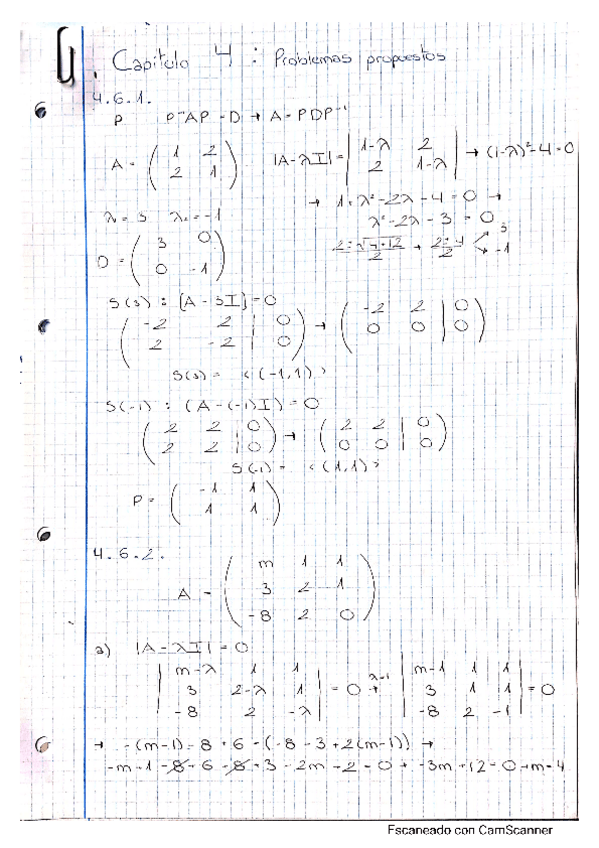 Capitulo 4 : Problemas propuestos
4.6.1.
P P⁻¹AP = D → A = PDP⁻¹
A = ( 1 2 ; 2 1 ) |A-λI| = | 1-λ 2 ; 2 1-λ | → (1-λ)²-4=0
→ 1+λ²-2λ-4=0 →
λ²-2λ-3=0
λ₁=3 λ₂=-1
D = ( 3 0 ; 0 -1 ) 2±√4+12 / 2 → 2±4 / 2 3 -1
S(3) : (A-3I)=0
( -2 2 | 0 ; 2 -2 | 0 ) → ( -2 2 | 0 ; 0 0 | 0 )
S(3) = <(-1,1)>
S(-1) : (A-(-1)I)=0
( 2 2 | 0 ; 2 2 | 0 ) → ( 2 2 | 0 ; 0 0 | 0 )
S(-1) = <(1,1)>
P = ( -1 1 ; 1 1 )
4.6.2.
A = ( m 1 1 ; 3 2 1 ; -8 2 0 )
a) |A-λI|=0
| m-λ 1 1 ; 3 2-λ 1 ; -8 2 -λ | = 0 λ=1 → | m-1 1 1 ; 3 1 1 ; -8 2 -1 | = 0
→ -(m-1)-8+6-(-8-3+2(m-1)) →
-m+1-8+6+8+3-2m+2=0 → -3m+12=0 → m=4
Escaneado con CamScanner